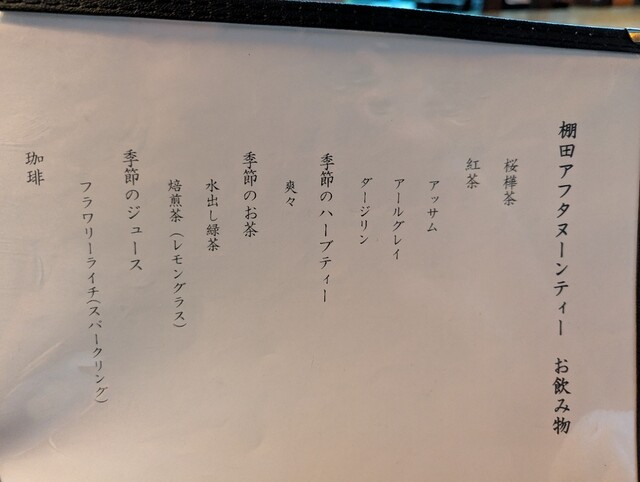 棚田アフタヌーンティー お飲み物
桜樺茶
紅茶
アッサム
アールグレイ
ダージリン
季節のハーブティー
爽々
季節のお茶
水出し緑茶
焙煎茶(レモングラス)
季節のジュース
フラワリーライチ(スパークリング)
珈琲